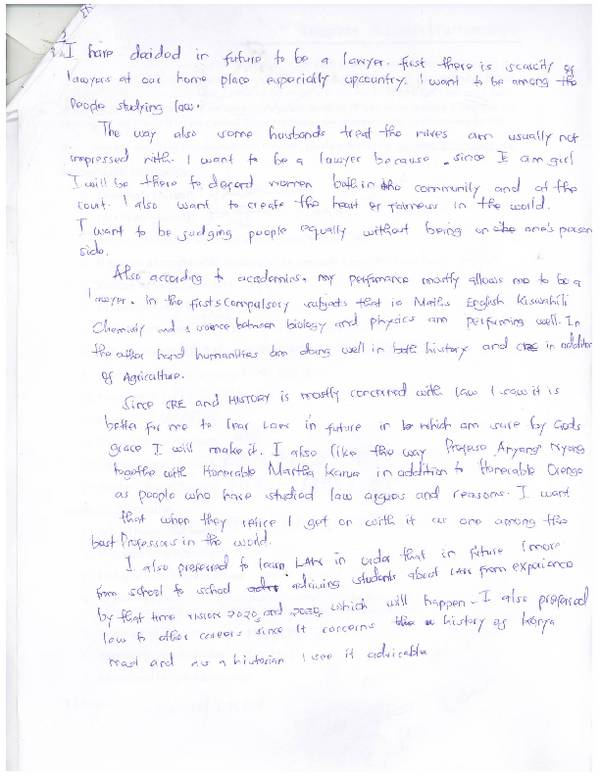 I have decided in future to be a lawyer. First there is scarcity of
lawyers at our home place especially upcountry. I want to be among the
People studying law.
The way also some husbands treat the wives am usually not
impressed with. I want to be a lawyer because since I am girl
I will be there to defend women both in the community and at the
court. I also want to create the heart of fairness in the world.
I want to be judging people equally without being on one's person
side.
Also according to academics, my performance mostly allows me to be a
lawyer. In the firsts compulsory subjects that is Maths English Kiswahili
Chemistry and science between biology and physics am performing well. In
the other hand humanities am doing well in both history and CRE in addition
of Agriculture.
Since CRE and HISTORY is mostly concerned with law I saw it is
better for me to lear Law in future in which am sure by Gods
grace I will make it. I also like the way Professo Anyang Nyong
together with Honorable Martha Karua in addition to Honorable Orengo
as people who have studied law argues and reasons. I want
that when they retire I get on with it as one among the
best Professors in the world.
I also preferred to learn LAW in order that in future I move
from school to school advising students about LAW from experience
by that time vision 2020, and 2030, which will happen. I also preferred
law to other careers since it concerns history of Kenya
read and as a historian I see it advicable